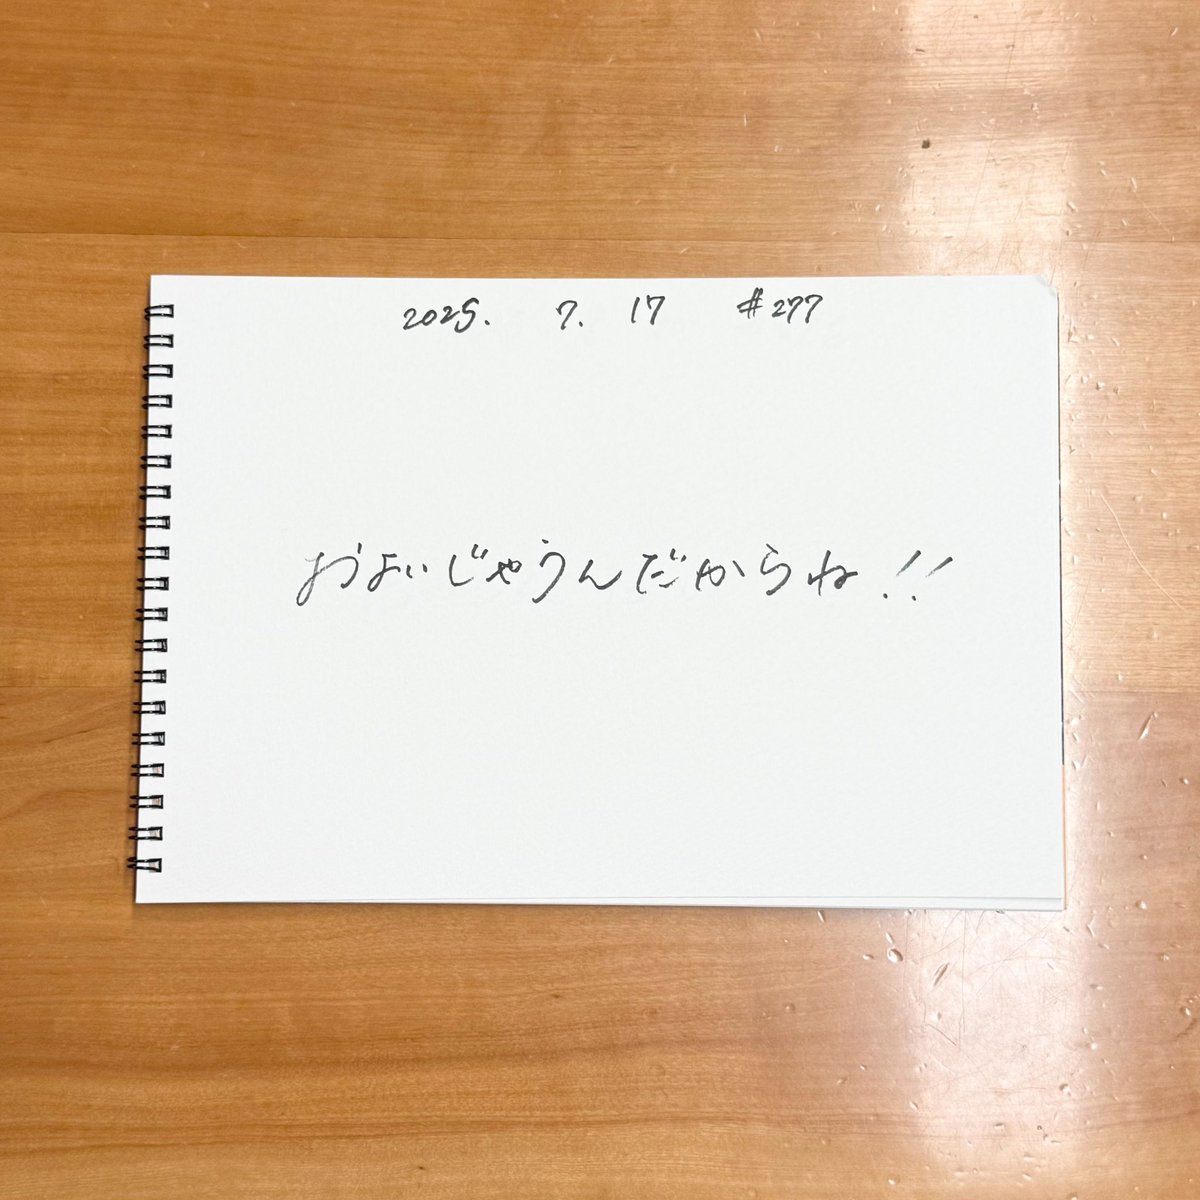 2025. 7. 17 #277
およいじゃうんだからね!!